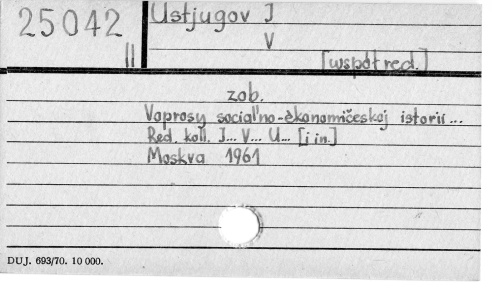 25042
II
Ustjugov I
V
[współred.]
zob.
Voprosy social'no-èkonomičeskoj istorii...
Red. koll. I... V... U... [i in.]
Moskva 1961
DUJ. 693/70. 10 000.